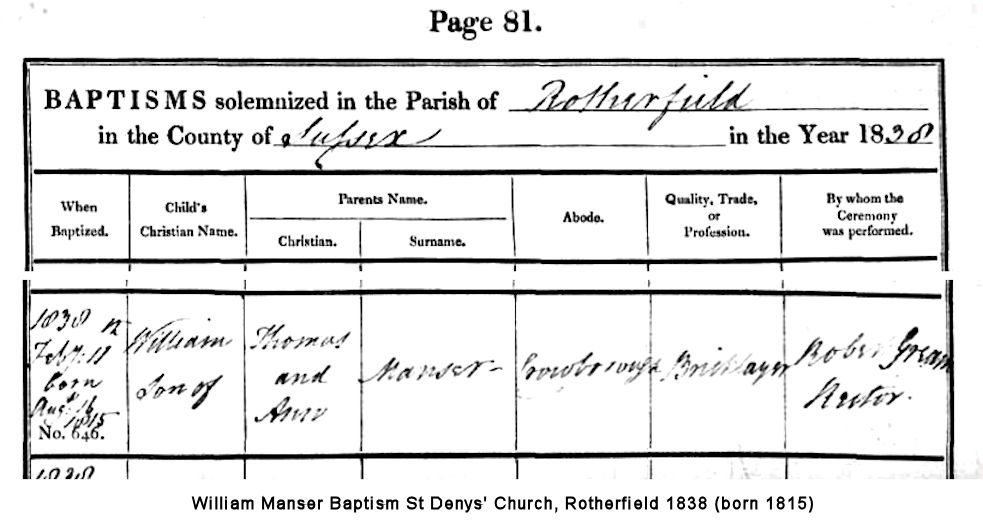 Page 81.
BAPTISMS solemnized in the Parish of Rotherfield
in the County of Sussex in the Year 1838
When
Baptized.
Child's
Christian Name.
Parents Name.
Christian.
Surname.
Abode.
Quality, Trade,
or
Profession.
By whom the
Ceremony
was performed.
1838
Feby: 11
born
Augst 16
1815
No. 646.
William
Son of
Thomas
and
Ann
Manser
Crowborough
Bricklayer
Robert Gream
Rector.
1838
William Manser Baptism St Denys' Church, Rotherfield 1838 (born 1815)